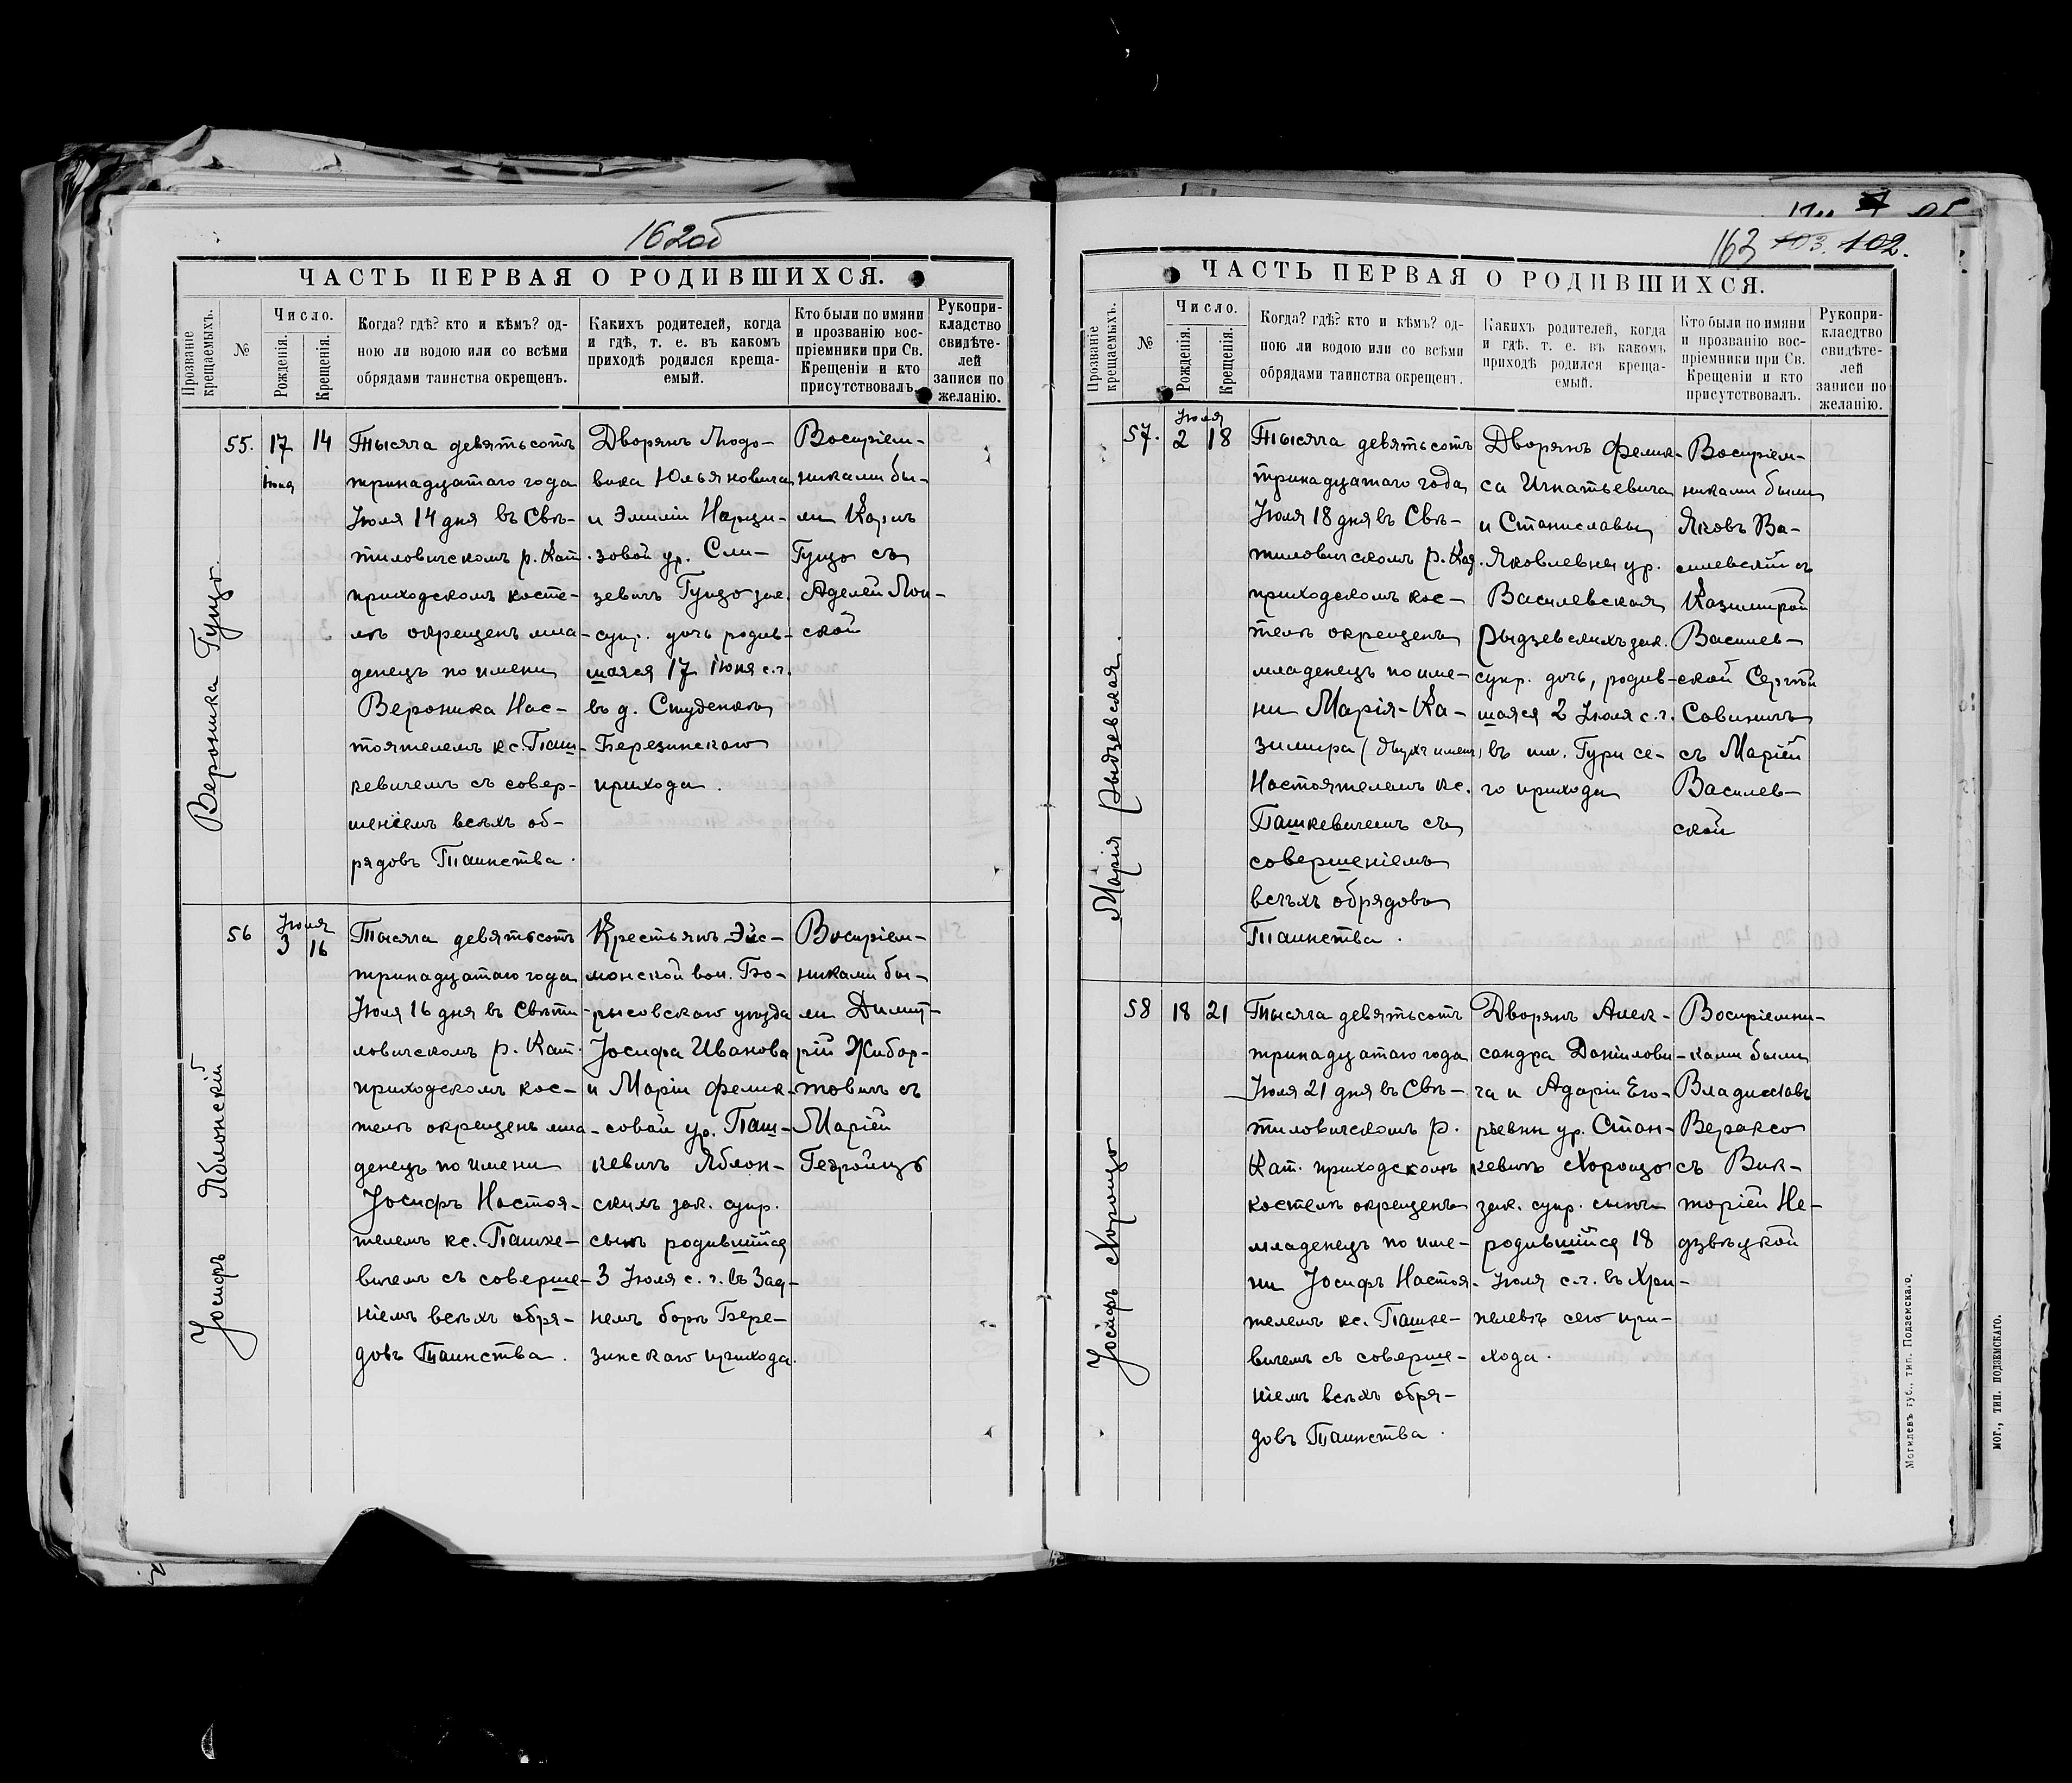 162об
ЧАСТЬ ПЕРВАЯ О РОДИВШИХСЯ.
Прозваніе крещаемыхъ.
№
Число.
Рожденія.
Крещенія.
Когда? гдѣ? кто и кѣмъ? од-
ною ли водою или со всѣми
обрядами таинства окрещенъ.
Какихъ родителей, когда
и гдѣ, т. е. въ какомъ
приходѣ родился креща-
емый.
Кто были по имяни
и прозванію вос-
пріемники при Св.
Крещеніи и кто
присутствовалъ.
Рукопри-
кладство
свидѣте-
лей
записи по
желанію.
Вероника Гунцо.
55.
17
Іюня
14
Тысяча девятьсотъ
тринадцатаго года
Іюля 14 дня въ Свѣ-
тиловичскомъ р. Кат.
приходскомъ косте-
лѣ окрещенъ мла-
денецъ по имени
Вероника Нас-
тоятелемъ кс. Паш-
кевичемъ съ совер-
шеніемъ всѣхъ об-
рядовъ Таинства.
Дворянъ Людо-
вика Юльяновича
и Эмиліи Нарци-
зовой ур. Сли-
зевичъ Гунцо зак.
супр. дочь родив-
шаяся 17 Іюня с.г.
въ д. Студенкѣ
Березинскаго
прихода.
Воспріем-
никами бы-
ли Карлъ
Гунцо съ
Аделей
ской
Іосифъ Яблонскій
56
Іюля
3
16
Тысяча девятьсотъ
тринадцатаго года
Іюля 16 дня въ Свѣти-
ловичскомъ р. Кат.
приходскомъ кос-
телѣ окрещенъ мла-
денецъ по имени
Іосифъ Настоя-
телемъ кс. Пашке-
вичемъ съ соверше-
ніемъ всѣхъ обря-
довъ Таинства.
Крестьянъ Эйс-
монской вол. Бо-
рысовскаго уѣзда
Іосифа Иванова
и Маріи Фелик-
совой ур. Паш-
кевичъ Яблон-
скихъ зак. супр.
сынъ родившійся
3 Іюля с. г. въ Зад-
немъ борѣ Бере-
зинскаго прихода.
Воспріем-
никами бы-
ли Димит-
рій Жибор-
товичъ съ
Маріей
Гедройцъ
163 103. 102.
ЧАСТЬ ПЕРВАЯ О РОДИВШИХСЯ.
Прозваніе крещаемыхъ.
№
Число.
Рожденія.
Крещенія.
Когда? гдѣ? кто и кѣмъ? од-
ною ли водою или со всѣми
обрядами таинства окрещенъ.
Какихъ родителей, когда
и гдѣ, т. е. въ какомъ
приходѣ родился креща-
емый.
Кто были по имяни
и прозванію вос-
пріемники при Св.
Крещеніи и кто
присутствовалъ.
Рукопри-
класдтво
свидѣте-
лей
записи по
желанію.
Марія Рыдзевская.
57.
Іюля
2
18
Тысяча девятьсотъ
тринадцатаго года
Іюля 18 дня въ Свѣ-
тиловичскомъ р. Кат.
приходскомъ кос-
телѣ окрещенъ
младенецъ по име-
ни Марія-Ка-
зимира (Двухъ именъ)
Настоятелемъ кс.
Пашкевичемъ съ
совершеніемъ
всѣхъ обрядовъ
Таинства.
Дворянъ Фелик-
са Игнатьевича
и Станиславы
Яковлевны ур.
Василевская
Рыдзевскихъ зак.
супр. дочь, родив-
шаяся 2 Іюля с.г.
въ им. Гури се-
го прихода
Воспріем-
никами были
Яковъ Ва-
силевскій съ
Казимирой
Василев-
ской Сергѣй
Савиничъ
съ Маріей
Василев-
ской
Іосифъ Хороцо
58
18
21
Тысяча девятьсотъ
тринадцатаго года
Іюля 21 дня въ Свѣ-
тиловичскомъ р.
Кат. приходскомъ
костелѣ окрещенъ
младенецъ по име-
ни Іосифъ Настоя-
телемъ кс. Пашке-
вичемъ съ соверше-
ніемъ всѣхъ обря-
довъ Таинства.
Дворянъ Алек-
сандра Даніилови-
ча и Адаріи Его-
рьевны ур. Стан-
кевичъ Хороцо
зак. супр. сынъ
родившійся 18
Іюля с.г. въ Хри-
пелевѣ сего при-
хода.
Воспріемни-
ками были
Владиславъ
Вераксо
съ Вик-
торіей Не-
дзвѣцкой
Могилевъ губ., тип. Подземскаго.
МОГ., ТИП. ПОДЗЕМСКАГО.